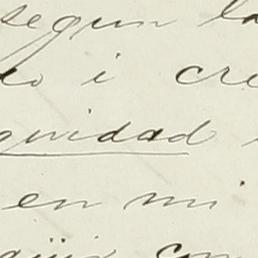 segun la
do i cre
quidad
en mi